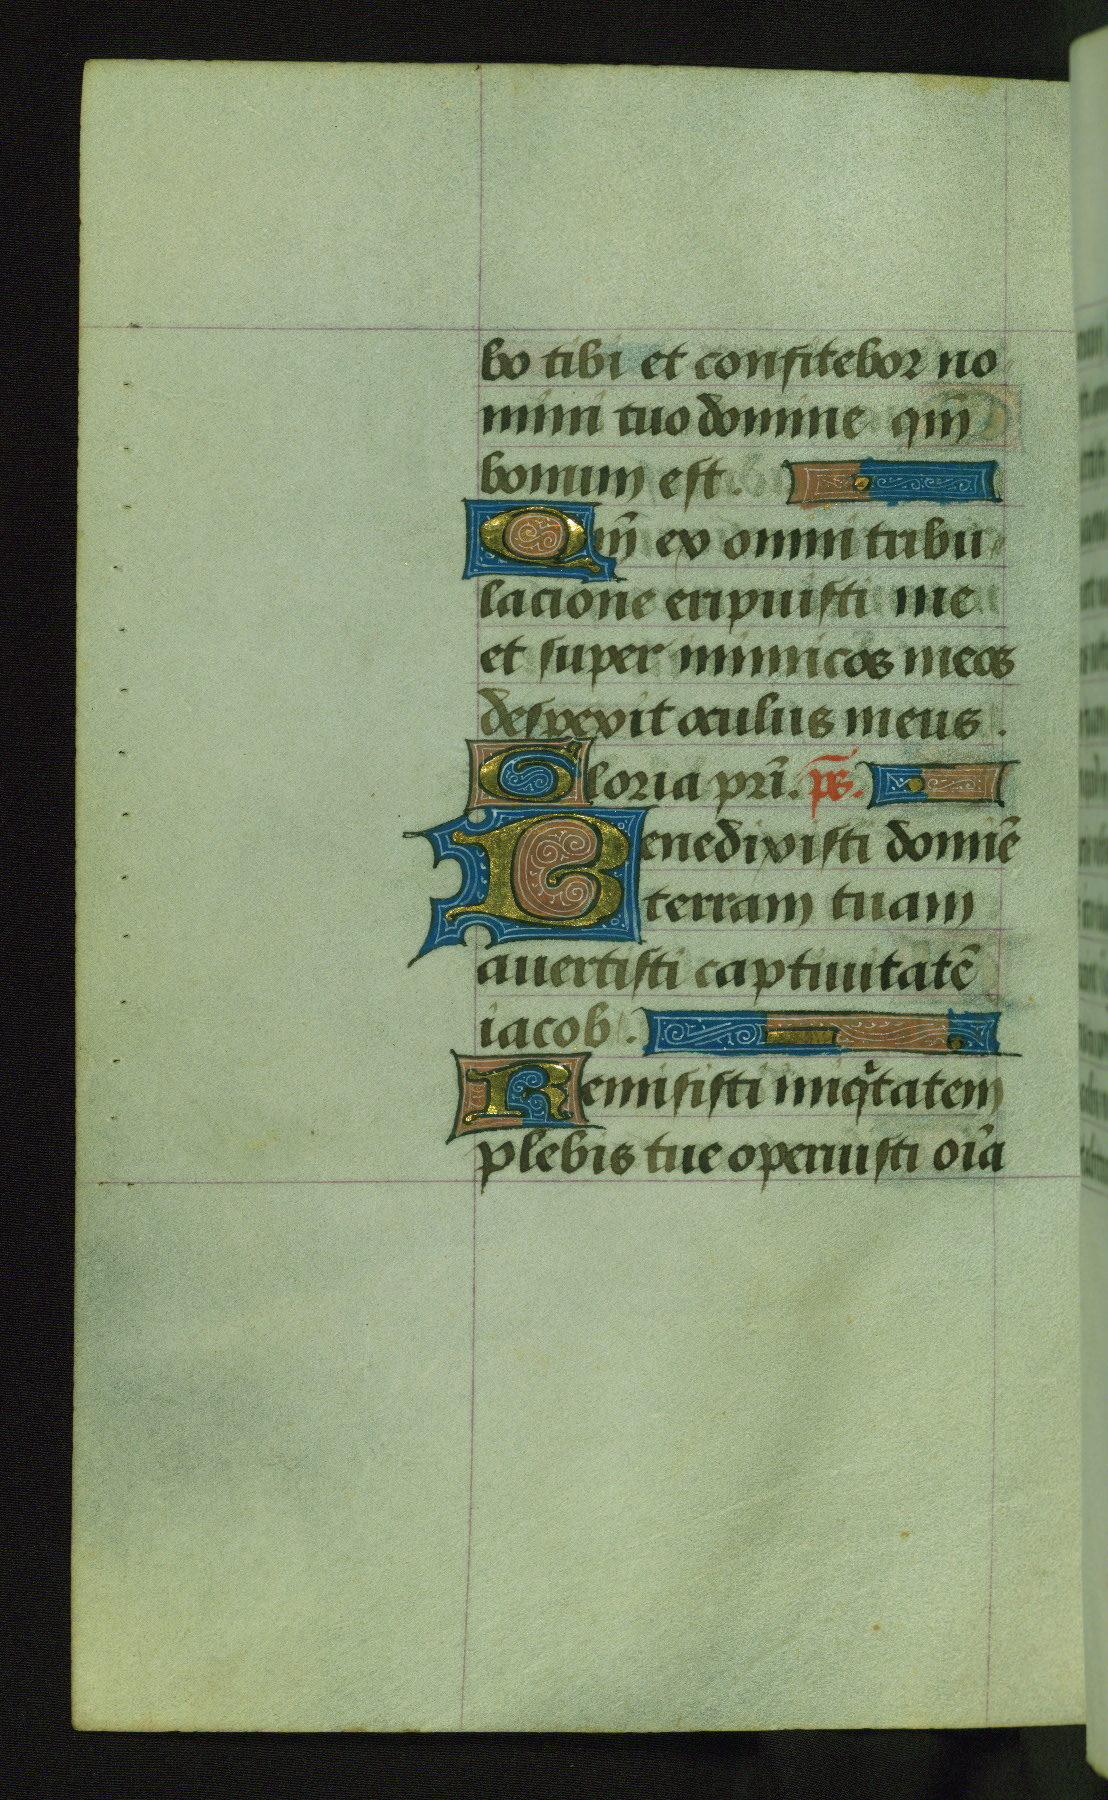 bo tibi et confitebor no
mini tuo domine qm̄
bonum est.
Qm̄ ex omni tribu
lacione eripuisti me
et super inimicos meos
despexit oculus meus.
Gloria pri᷒. ps̄.
Benedixisti domiē
terram tuam
auertisti captiuitatē
iacob.
Remisisti iniqͣtatem
plebis tue operuisti oīa